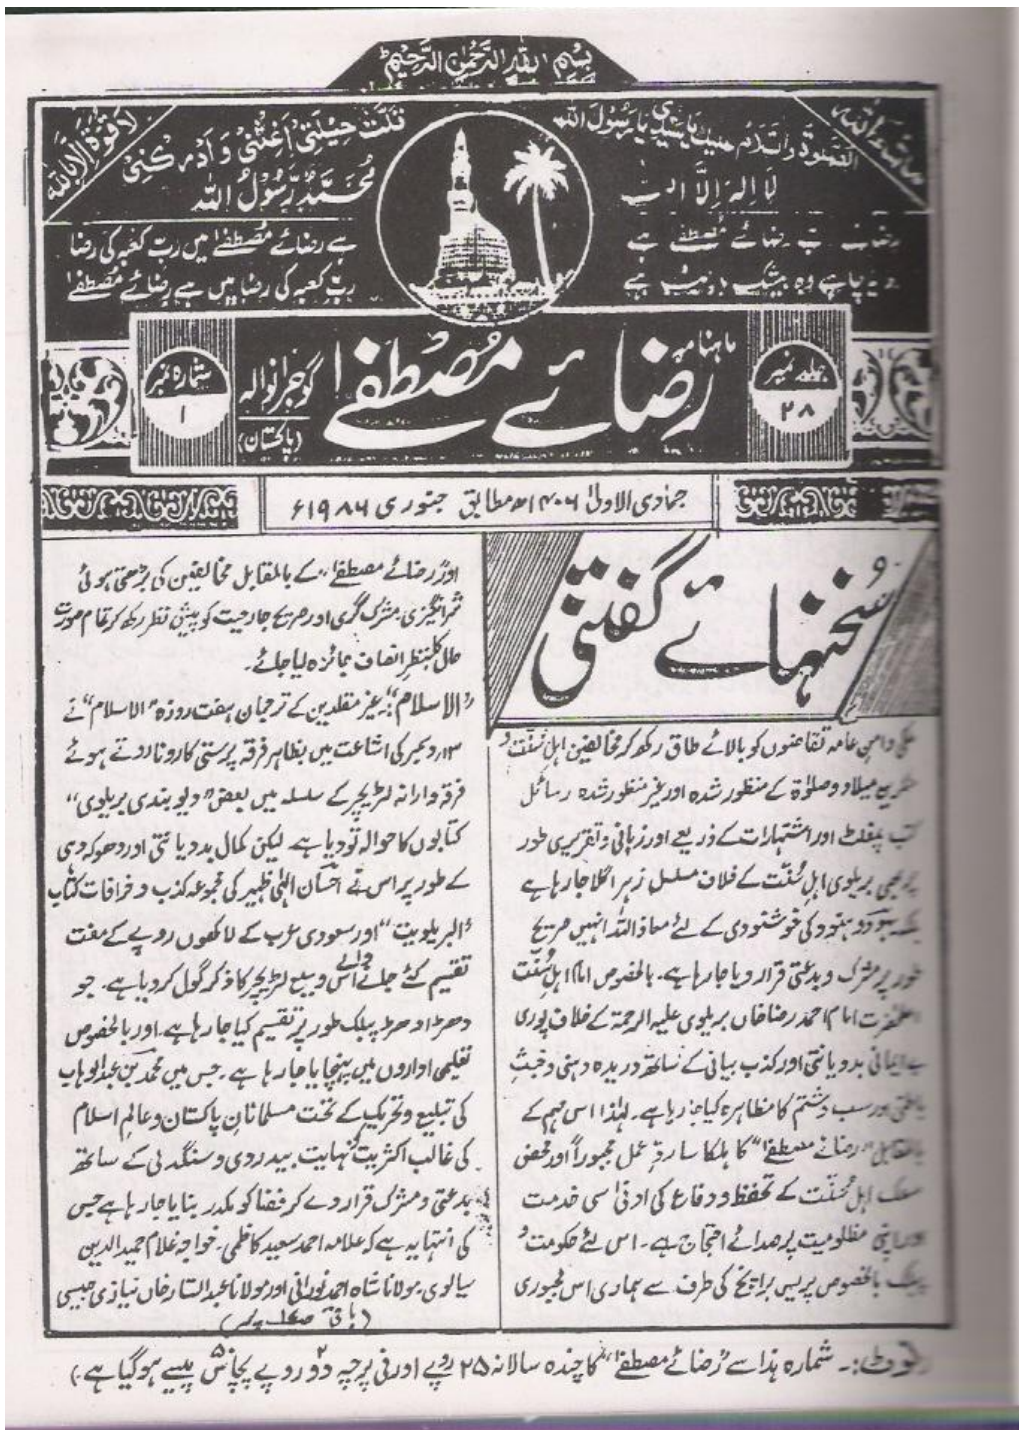 بسم اللہ الرحمٰن الرحیم
ماشاء اللہ
لا قوۃ الا باللہ
الصلوٰۃ والسلام علیک یا سیدی یا رسول اللہ
قلت حیلتی اغثنی وادرکنی
لا الہ الا اللہ
محمد رسول اللہ
رضائے مصطفےٰ ہے
ہے رضائے مصطفےٰ میں ربِ کعبہ کی رضا
وہ بیشک ہے
ربِ کعبہ کی رضا میں ہے رضائے مصطفےٰ
جلد نمبر
۲۸
ماہنامہ
رضائے مصطفےٰ
گوجرانوالہ
(پاکستان)
شمارہ نمبر
۱
جمادی الاولیٰ ۱۴۰۶ھ مطابق جنوری ۱۹۸۶ء
سخنہائے گفتنی
ملکی و امن عامہ تقاضوں کو بالائے طاق رکھ کر مخالفین اہل سُنّت و
میلاد و صلوٰۃ کے منظور شدہ اور غیر منظور شدہ رسائل
کتب پمفلٹ اور اشتہارات کے ذریعے اور زبانی و تقریری طور
پر بھی بریلوی اہل سُنّت کے خلاف مسلسل زہر اگلا جا رہا ہے
یہود و ہنود کی خوشنودی کے لئے معاذ اللہ انہیں صریح
طور پر مشرک و بدعتی قرار دیا جا رہا ہے۔ بالخصوص امام اہل سُنّت
اعلیٰحضرت امام احمد رضا خاں بریلوی علیہ الرحمۃ کے خلاف پوری
بے ایمانی بددیانتی اور کذب بیانی کے ساتھ دریدہ دہنی و خبثِ
باطنی اور سب و شتم کا مظاہرہ کیا جا رہا ہے۔ لہٰذا اس مہم کے
بالمقابل "رضائے مصطفےٰ" کا ہلکا سا ردِّ عمل مجبوراً اور محض
مسلک اہل سُنّت کے تحفظ و دفاع کی ادنیٰ سی خدمت
اور اپنی مظلومیت پر صدائے احتجاج ہے۔ اس لئے حکومت و
بالخصوص پریس برانچ کی طرف سے ہماری اس مجبوری
اور "رضائے مصطفےٰ" کے بالمقابل مخالفین کی بڑھتی ہوئی
شر انگیزی، مشرک گری اور صریح جارحیت کو پیش نظر رکھ کر تمام صورت
حال کا بنظرِ انصاف جائزہ لیا جائے۔
"الاسلام":۔ غیر مقلدین کے ترجمان ہفت روزہ "الاسلام" نے
۱۳ دسمبر کی اشاعت میں بظاہر فرقہ پرستی کا رونا روتے ہوئے
فرقہ وارانہ لٹریچر کے سلسلہ میں بعض "دیوبندی بریلوی"
کتابوں کا حوالہ تو دیا ہے۔ لیکن کمال بددیانتی اور دھوکہ دہی
کے طور پر اس نے احسان الٰہی ظہیر کی مجموعہ کذب و خرافات کتاب
"البریلویت" اور سعودی عرب کے لاکھوں روپے کے مفت
تقسیم کئے جانے والے اس وسیع لٹریچر کا ذکر گول کر دیا ہے۔ جو
دھڑا دھڑ پبلک طور پر تقسیم کیا جا رہا ہے۔ اور بالخصوص
تعلیمی اداروں میں پہنچایا جا رہا ہے۔ جس میں محمد بن عبدالوہاب
کی تبلیغ و تحریک کے تحت مسلمانانِ پاکستان و عالمِ اسلام
کی غالب اکثریت کو نہایت بیدردی و سنگدلی کے ساتھ
بدعتی و مشرک قرار دے کر فضا کو مکدر بنایا جا رہا ہے جس
کی انتہا یہ ہے کہ علامہ احمد سعید کاظمی۔ خواجہ غلام حمید الدین
سیالوی۔ مولانا شاہ احمد نورانی اور مولانا عبدالستار خاں نیازی جیسی
(باقی صفحہ پر)
نوٹ:۔ شمارہ ہذا سے "رضائے مصطفےٰ" کا چندہ سالانہ ۲۵ روپے اور فی پرچہ دو ۲ روپے پچاس ۵۰ پیسے ہو گیا ہے۔)